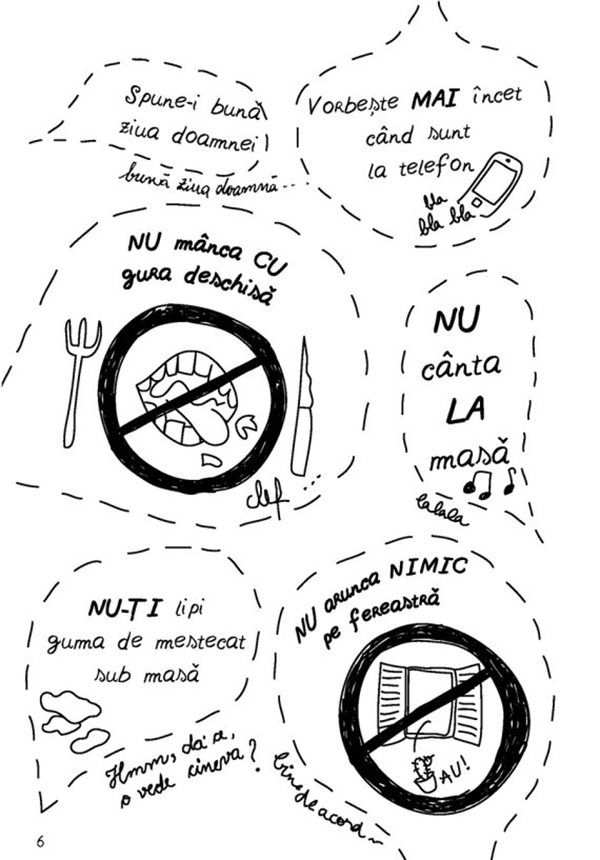 Spune-i bună
ziua doamnei!
bună ziua doamnă...
Vorbește MAI încet
când sunt
la telefon
bla
bla bla
NU mânca CU
gura deschisă
clef...
NU
cânta
LA
masă
lalala
NU-ȚI lipi
guma de mestecat
sub masă
Hmm, da' ce,
o vede cineva?
NU arunca NIMIC
pe fereastră
AU!
bine, de acord...
6